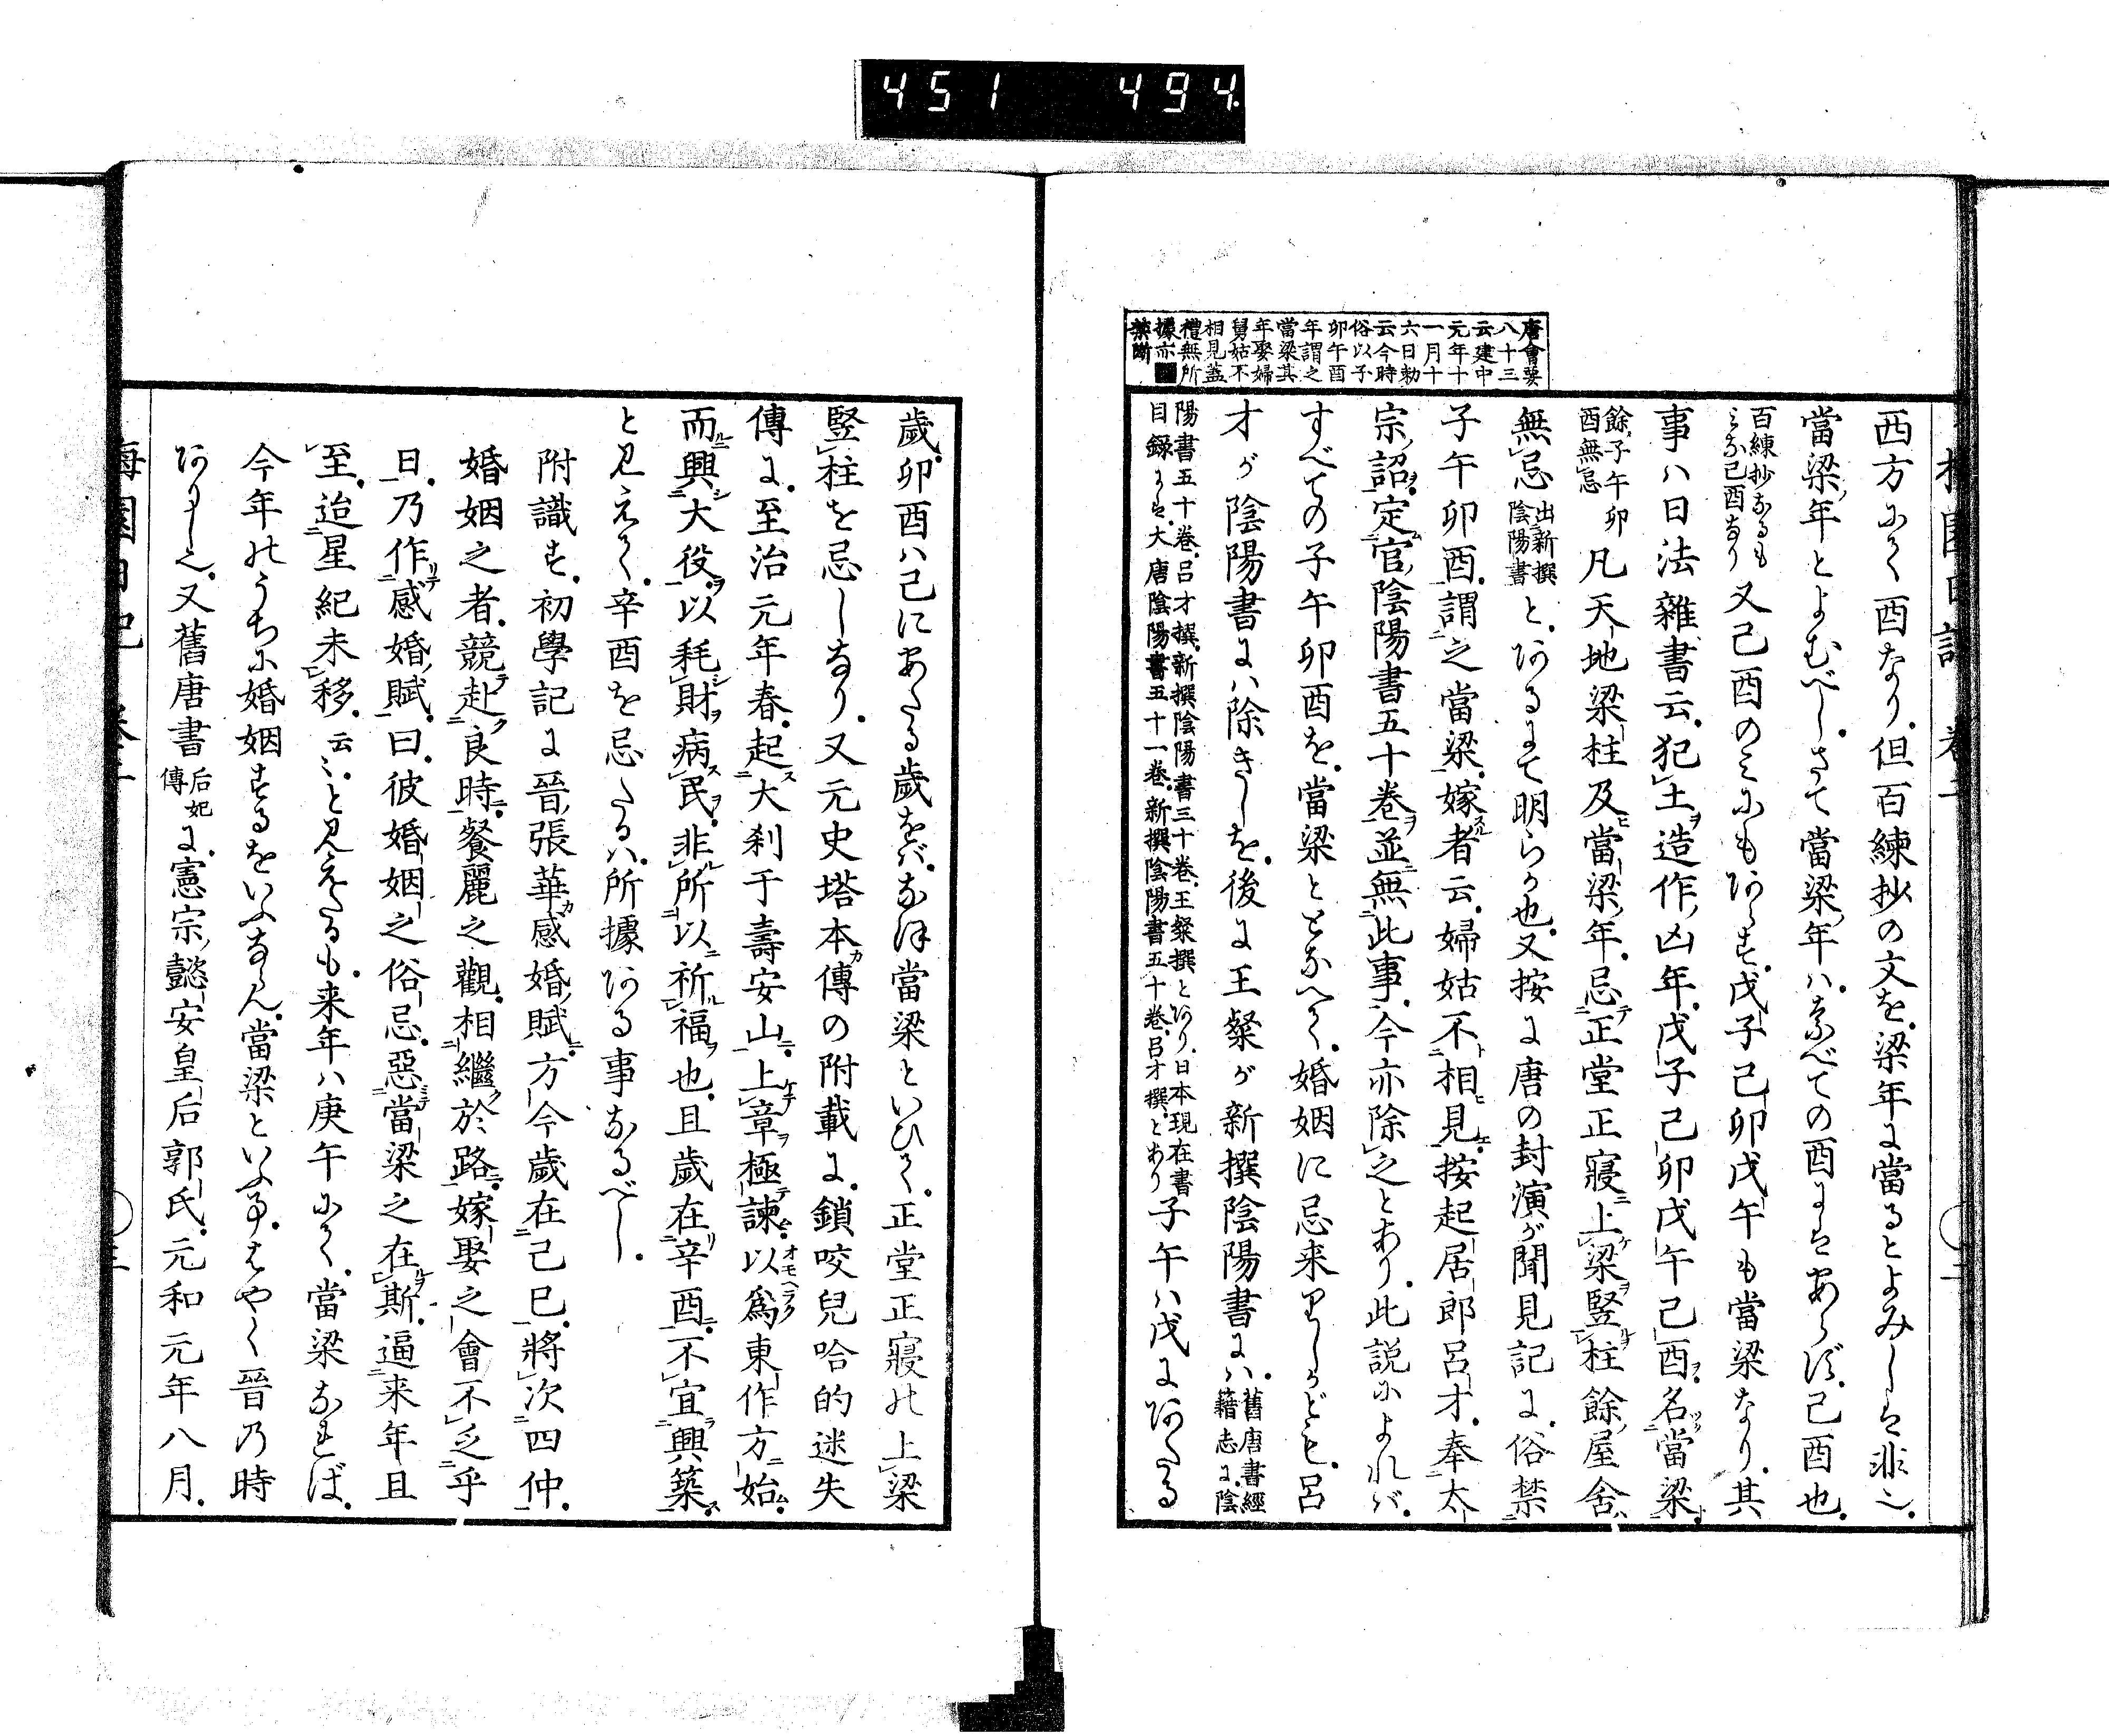 451 494
唐會要
八十三
云建中
元年十
一月十
六日勅
云今時
俗以子
卯午酉
年謂之
當梁其
年娶婦
舅姑不
相見蓋
禮無所
據亦
禁斷
西方にて酉なり。但百練抄の文を。梁年に當るとよみしは非也。
當梁ノ年とよむべし。さて當梁ノ年ハ。なべての酉にはあらず。己酉也。
百練抄なるも
みな己酉なり
又己酉のみにもあらず。戊子己卯戊午も當梁なり。其
事ハ日法雜書云。犯土ヲ造作ノ凶年。戊子己卯戊午己酉ヲ。名當梁ト。
餘ノ子午卯
酉無忌
凡天地梁柱及ヒ當梁ノ年。忌テ正堂正寢ニ上ケ梁ヲ竪ルヿヲ柱餘ノ屋舍ハ
無忌
出新撰
陰陽書
と。あるにて明らか也。又按に唐の封演が聞見記に。俗禁
子午卯酉。謂之當梁。嫁スル者云。婦姑不相見。按起居郎呂才。奉太
宗ノ詔ヲ。定官ノ陰陽書五十卷ヲ。並無此事。今亦除之とあり。此説によれバ。
すべての子午卯酉を。當梁ととなへて。婚姻に忌来りしかども。呂
才が陰陽書にハ除きしを。後に王粲が新撰陰陽書にハ。
舊唐書經
籍志に。陰
陽書五十卷。呂才撰。新撰陰陽書三十卷。王粲撰とあり。日本現在書
目録には。大唐陰陽書五十一卷。新撰陰陽書五十卷。呂才撰。とあり
子午ハ戊にあたる
歲。卯酉ハ己にあたる歲をバ。なほ當梁といひて。正堂正寢の上梁
竪柱を忌しなり。又元史塔本カ傳の附載に。鎖咬兒哈的迷失
傳に。至治元年春。起ス大刹于壽安山ニ。上ケテ章ヲ極テ諫ム。以爲オモヘラク東作方ニ始ム。
而ルニ興シ大役ヲ。以耗シ財ヲ病ス民ヲ。非ル所以ニ祈ル福ヲ也。且歲在リ辛酉ニ。不宜ラ興築ス。
と見えて。辛酉を忌たるハ。所據ある事なるべし。
附識す。初學記に晉ノ張華カ感婚ノ賦ニ。方今歲在己巳。將次四仲。
婚姻之者。競テ赴ク良時ニ。餐麗之觀。相繼ク於路ニ。嫁娶之會不乏乎
日。乃作リテ感婚ノ賦。曰。彼婚姻之俗忌。惡ミテ當梁之在ルヲ斯。逼来年且
至。迨星紀未移。云〻。と見えたるも。来年ハ庚午にて。當梁なれば。
今年のうちに婚姻するをいふならん。當梁といふ事。はやく晉の時
ありし也。又舊唐書
后妃
傳
に。憲宗ノ懿安皇后郭氏。元和元年八月。